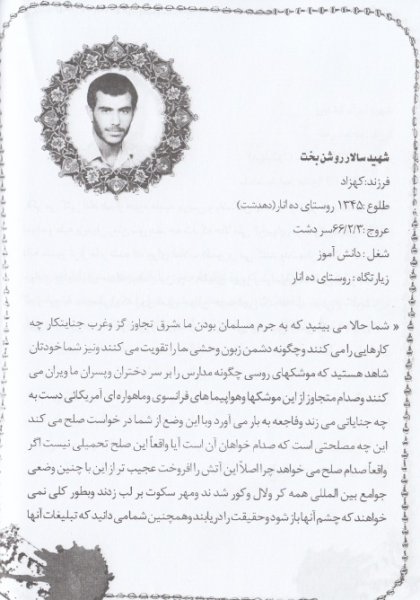 شهید سالار روشن بخت
فرزند: کهزاد
طلوع: ۱۳۴۵ روستای ده انار(دهدشت)
عروج: ۶۶/۲/۳ سر دشت
شغل: دانش آموز
زیارتگاه: روستای ده انار
« شما حالا می بینید که به جرم مسلمان بودن ما، شرق تجاوز گز وغرب جنایتکار چه
کارهایی را می کنند و چگونه دشمن زبون وحشی، ما را تقویت می کنند ونیز شما خودتان
شاهد هستید که موشکهای روسی چگونه مدارس را بر سر دختران وپسران ما ویران می
کنند وصدام متجاوز از این موشکها وهواپیماهای فرانسوی وماهواره ای آمریکائی دست به
چه جنایاتی می زند وفاجعه به بار می آورد وبا این وضع از شما در خواست صلح می کند
این چه مصلحتی است که صدام خواهان آن است آیا واقعاً این صلح تحمیلی نیست اگر
واقعاً صدام صلح می خواهد چرا اصلاً این آتش را افروخت عجیب تر از این با چنین وضعی
جوامع بین المللی همه کر ولال وکور شدند ومهر سکوت بر لب زدند وبطور کلی نمی
خواهند که چشم آنها باز شود و حقیقت را دریابند وهمچنین شما می دانید که تبلیغات آنها